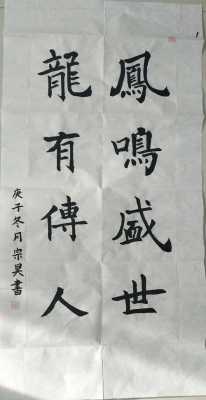 鳳鳴盛世
龍有傳人
庚子冬月宗昊書